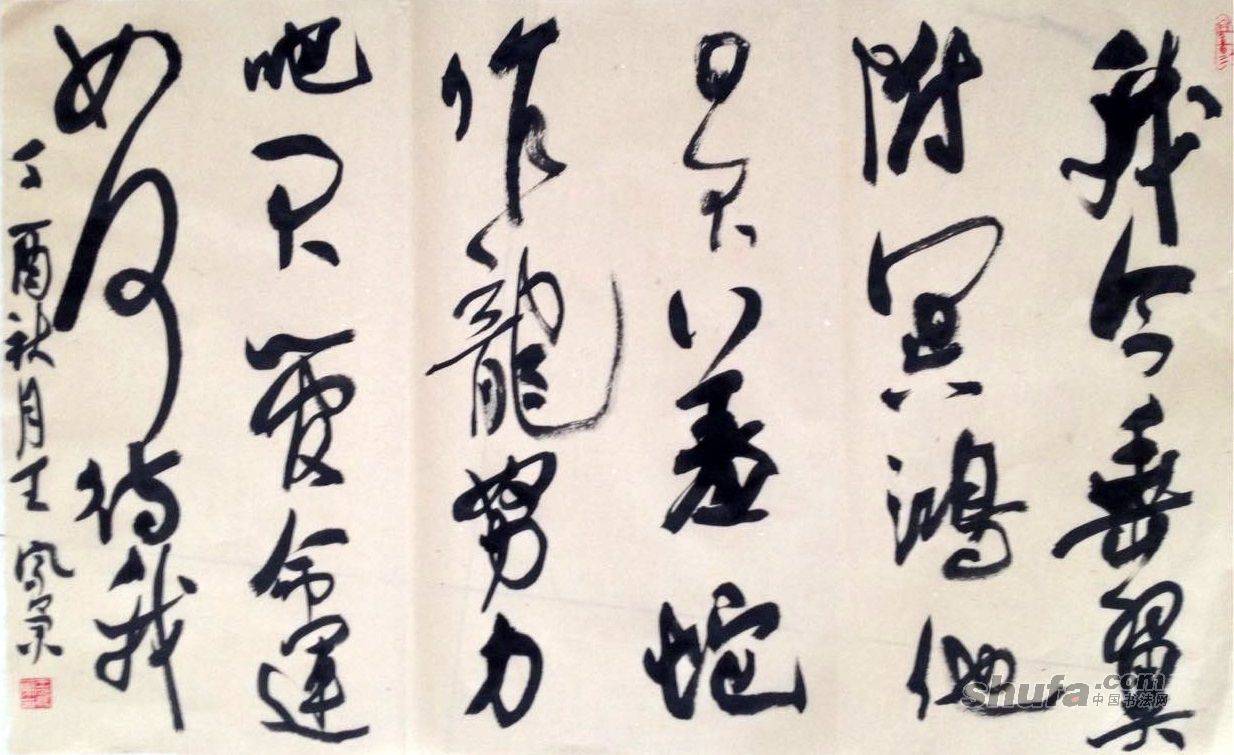 我今垂翼
附冥鸿他
日不羞蛇
作龍努力
吧不管命運
如何待我
丁酉秋月王
shufa.com
中国书法网